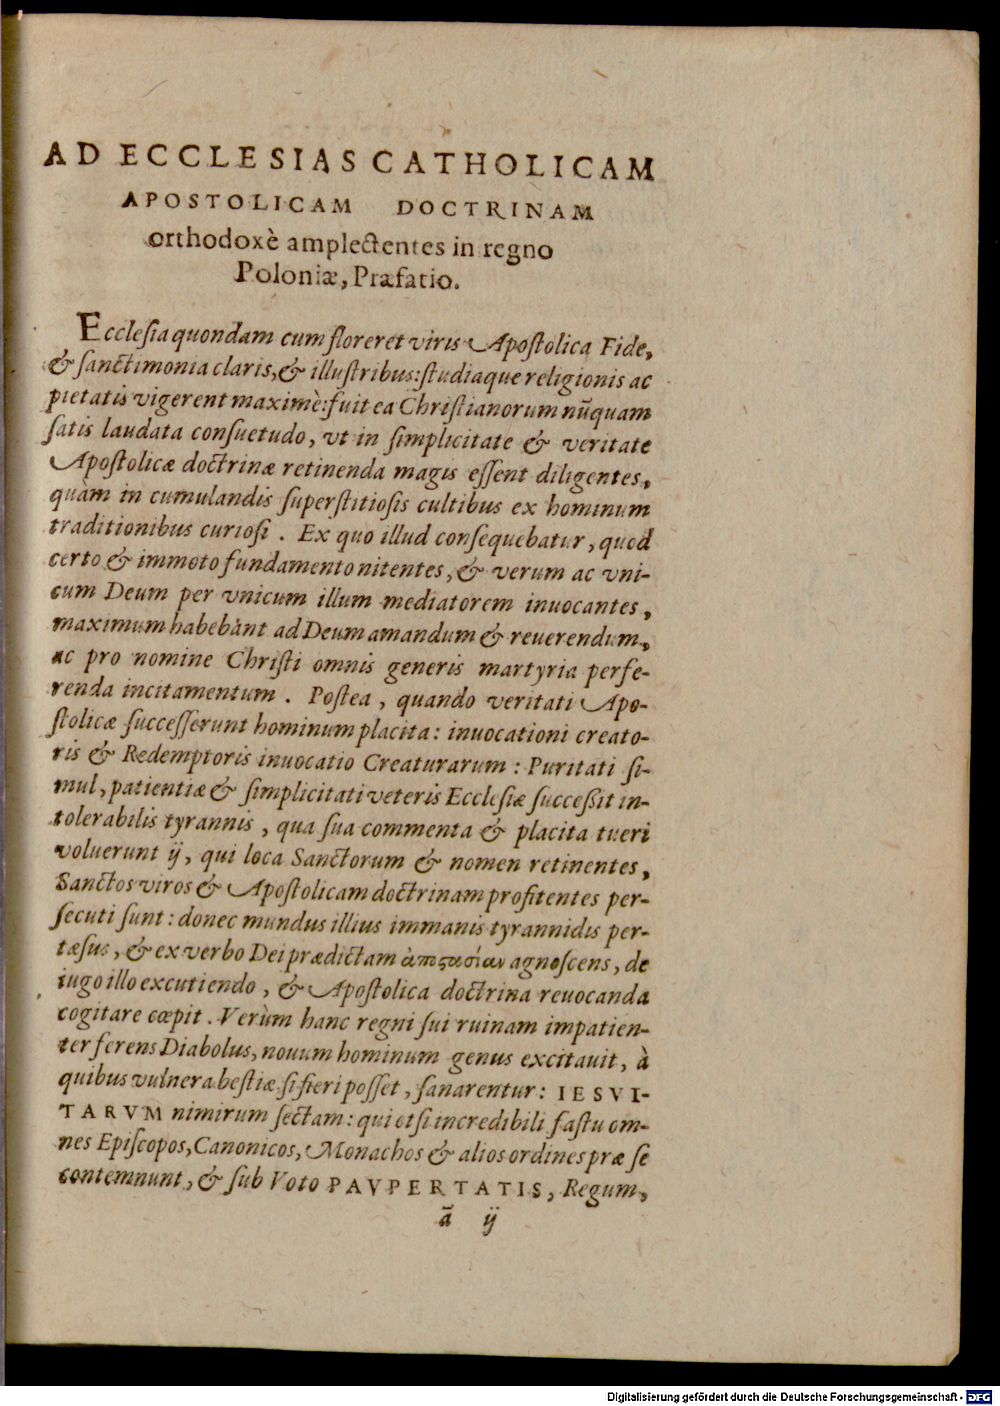 AD ECCLESIAS CATHOLICAM
APOSTOLICAM DOCTRINAM
orthodoxè amplectentes in regno
Poloniæ, Præfatio.
Ecclesia quondam cum floreret viris Apostolica Fide,
& sanctimonia claris, & illustribus: studiaque religionis ac
pietatis vigerent maximè: fuit ea Christianorum nũquam
satis laudata consuetudo, vt in simplicitate & veritate
Apostolicæ doctrinæ retinenda magis essent diligentes,
quàm in cumulandis superstitiosis cultibus ex hominum
traditionibus curiosi. Ex quo illud consequebatur, quod
certo & immoto fundamento nitentes, & verum ac vni-
cum Deum per vnicum illum mediatorem inuocantes,
maximum habebant ad Deum amandum & reuerendum,
ac pro nomine Christi omnis generis martyria perfe-
renda incitamentum. Postea, quando veritati Apo-
stolicæ successerunt hominum placita: inuocationi creato-
ris & Redemptoris inuocatio Creaturarum: Puritati si-
mul, patientiæ & simplicitati veteris Ecclesiæ successit in-
tolerabilis tyrannis, qua sua commenta & placita tueri
voluerunt ij, qui loca Sanctorum & nomen retinentes,
Sanctos viros & Apostolicam doctrinam profitentes per-
secuti sunt: donec mundus illius immanis tyrannidis per-
tæsus, & ex verbo Dei prædictam ἀποστασίαν agnoscens, de
iugo illo excutiendo, & Apostolica doctrina reuocanda
cogitare cœpit. Verùm hanc regni sui ruinam impatien-
ter ferens Diabolus, nouum hominum genus excitauit, à
quibus vulnera bestiæ si fieri posset, sanarentur: IESVI-
TARVM nimirum sectam: qui etsi incredibili fastu om-
nes Episcopos, Canonicos, Monachos & alios ordines præ se
contemnunt, & sub Voto PAVPERTATIS, Regum,
ã ij
Digitalisierung gefördert durch die Deutsche Forschungsgemeinschaft - DFG